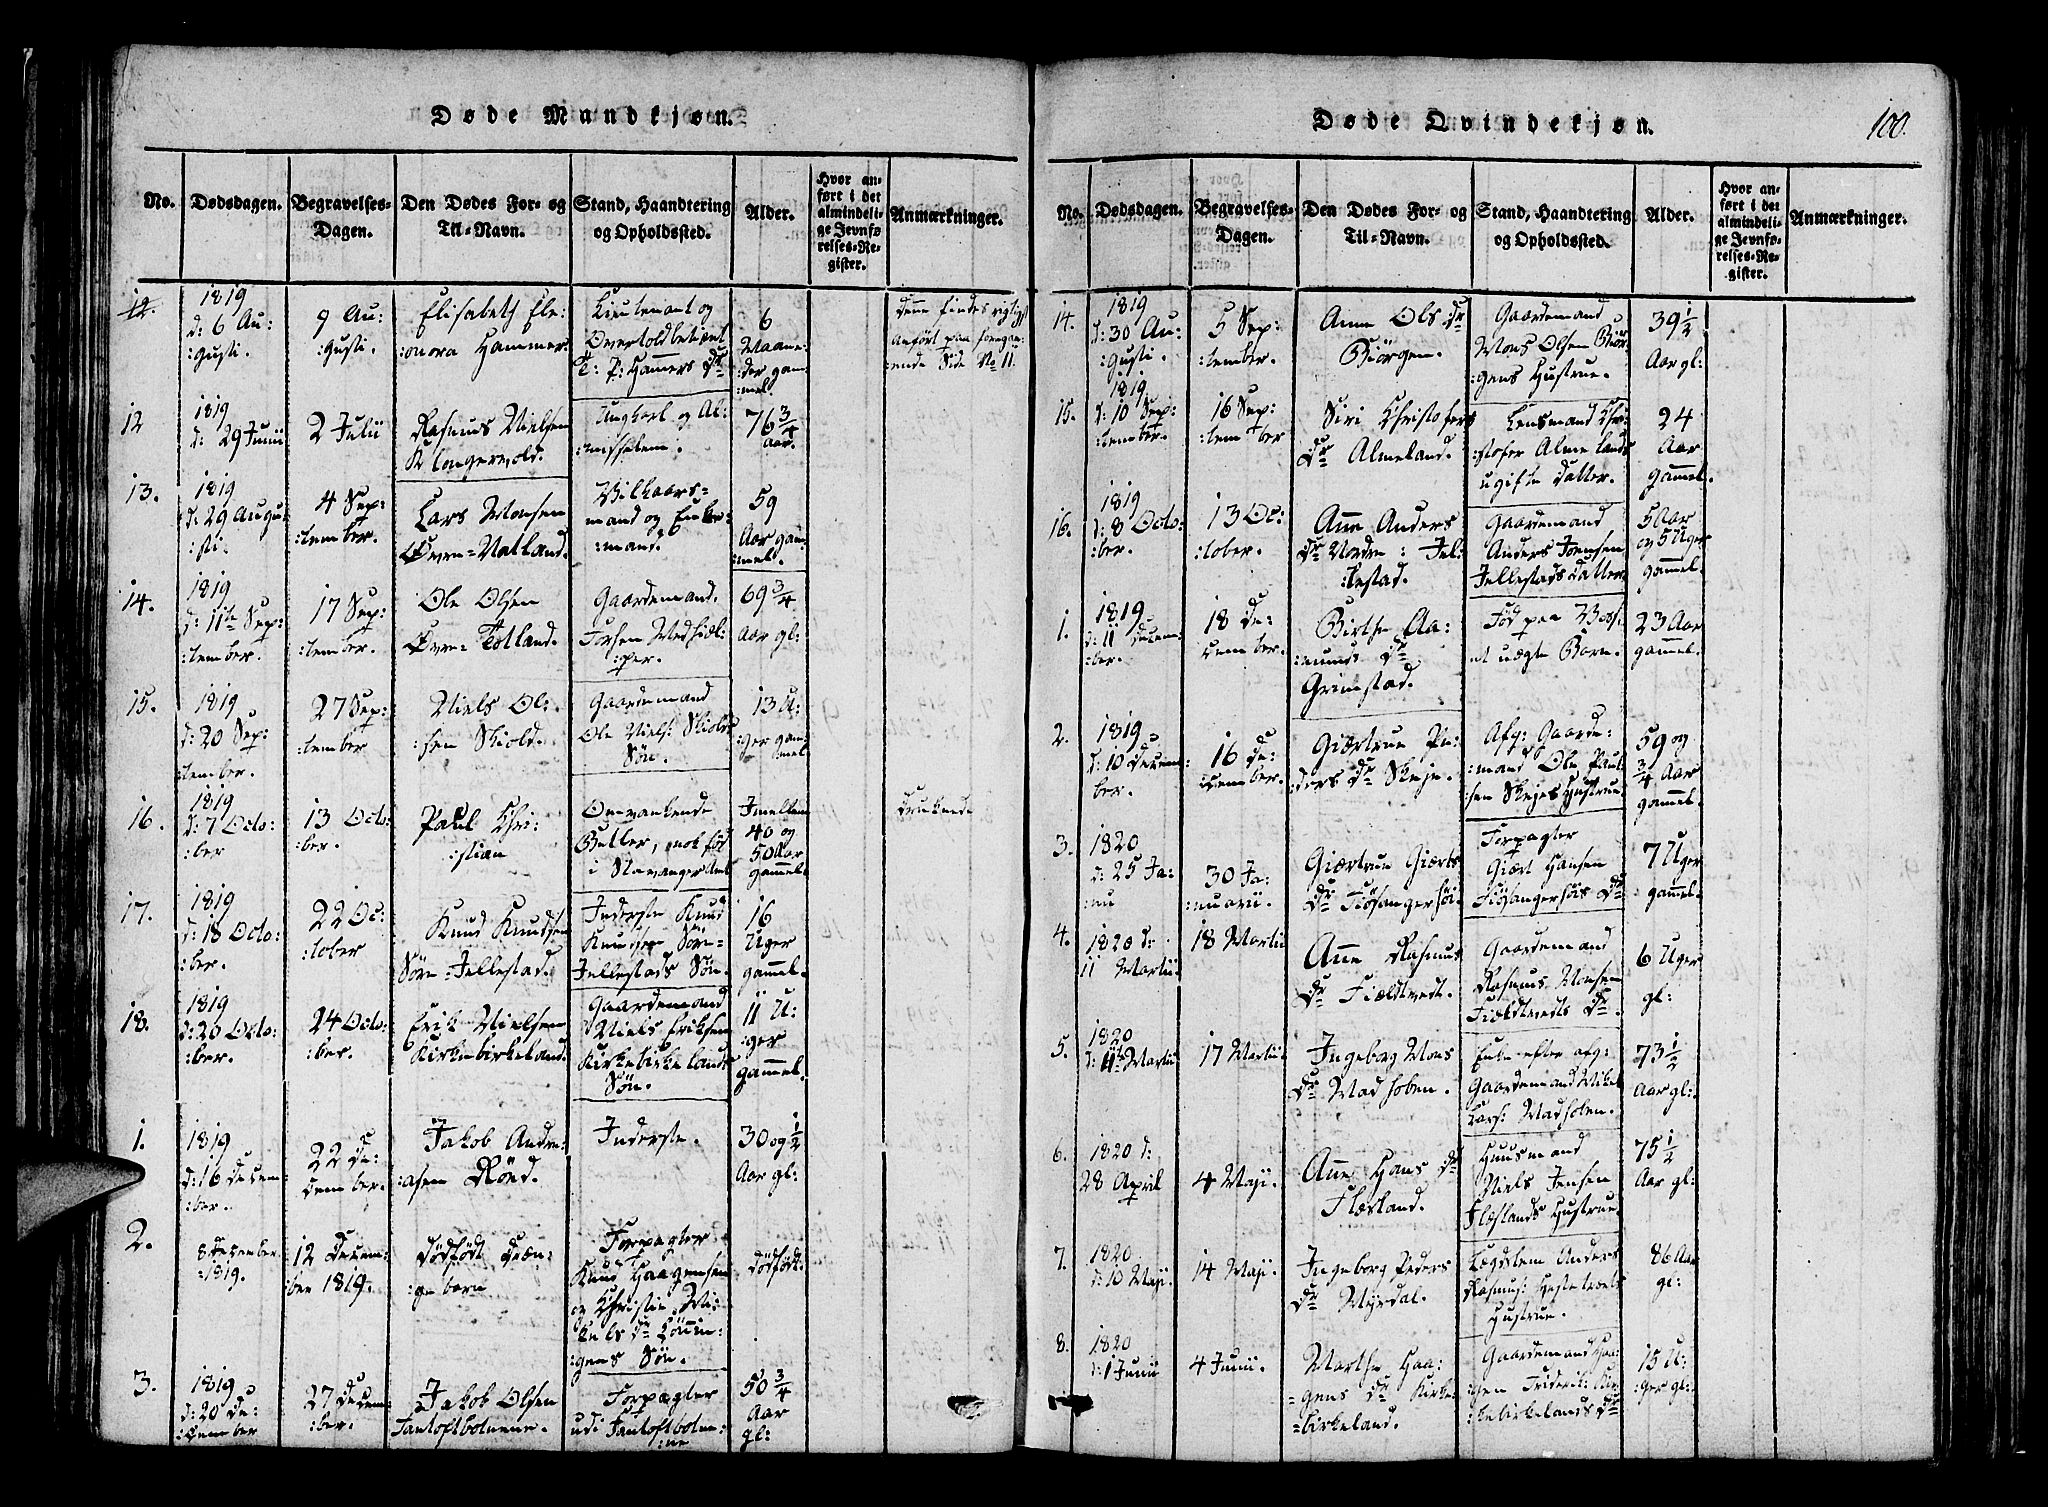 Døde Mandkjøn.
No.
Dødsdagen.
Begravelses-
Dagen.
Den Dødes For- og
Til-Navn.
Stand, Haandtering
og Opholdssted.
Alder.
Hvor an-
ført i det
almindeli-
ge Jevnfø-
relses-Re-
gister.
Anmærkninger.
12.
1819
d: 6 Au:
:gusti.
9 Au:
:gusti.
Elisabeth Ele:
:onora Hammer.
Lieutenant og
Overtoldbetient
T: P: Hammers Dr
6
Maane:
:der gam
:mel.
denne findes rigtigst
anført paa foregaa:
:ende Side No 11.
12
1819
d: 29 Junii
2 Julii
Rasmus Nielsen
Klongerevold.
Ungkarl og Al:
:misselem.
76 3/4
Aar.
13.
1819
d: 29 Augu:
:sti.
4 Sep:
:tember.
Lars Monsen
Øvre=Natland.
Vilkaars=
mand og Enke:
:mand.
59
Aar gam:
:mel.
14.
1819
d: 11te Sep:
:tember.
17 Sep:
:tember.
Ole Olsen
Øvre=Totland.
Gaardemand.
Forsen Medhiæl:
:per.
69 3/4
Aar gl:
15.
1819
d: 20 Sep:
:tember.
27 Sep:
:tember
Niels Ol:
:sen Skiold.
Gaardemand
Ole Niels: Skiolds
Søn.
13 U:
:ger gam
:mel
16.
1819
d: 7 Octo:
:ber
13 Octo:
:ber.
Paul Chri:
:stian
Omvankende
Betler, nok fød
i Stavanger Amt
Imellem
40 og
50 Aar
gammel.
Druknede
17.
1819
d: 18 Octo:
:ber.
22 Oc:
:tober
Knud Knudsen
Søre=Jellestad.
Inderste Knud
Knudsen Søre=
Jellestads Søn.
16
Uger
gammel.
18.
1819
d: 20 Octo:
:ber.
24 Octo:
:ber.
Erik Nielsen
Kirkebirkeland.
Gaardemand
Niels Eriksen
Kirkebirkelands
Søn.
11 U:
:ger
gammel.
1.
1819
d: 16 Decem:
:ber.
22 De:
cember.
Jakob Andre:
:asen Röed.
Inderste.
30 og 1/2
Aar gl:
2.
8 December
1819.
12 Decem:
:ber 1819.
Dødfødt Dræn:
:ge barn
Forpagter
Knud Haagensen
og Christie Mi:
kels Dr Lönin:
:gens Søn.
Dødfødt.
3.
1819
d: 20 De:
:cember
27 Decem:
:ber.
Jakob Olsen
Fantoftbotnene.
Forpagter
udi Fantoftbotne:
:ne
50 3/4
Aar
gl:
Døde Qvindekjøn.
100.
No.
Dødsdagen.
Begravelses-
Dagen.
Den Dødes For- og
Til-Navn.
Stand, Haandtering
og Opholdssted.
Alder.
Hvor an-
ført i det
almindeli-
ge Jevnfø-
relses-Re-
gister.
Anmærkninger.
14.
1819
d: 30 Au:
:gusti.
5 Sep:
:tember.
Anne Ols Dr
Biörgen.
Gaardemand
Mons Olsen Biör:
:gens Hustrue.
39 1/2
Aar gl:
15.
1819
d: 10 Sep:
:tember.
16 Sep:
:tember
Siri Christofers
Dr Almeland.
Lensmand Chri
stofer Almelands
ugifte Datter.
24
Aar
gammel.
16.
1819
d: 8 Octo:
ber.
13 Oc:
:tober.
Anne Anders
Dr Nordre: Jel:
:lestad.
Gaardemand
Anders Joensen
Jellestads Datter
5 Aar
og 5 Uger
gammel.
1.
1819
d: 11 Decem:
:ber.
18 De:
cember.
Birthe Aa:
:munds Dr
Grimstad.
Fød paa Vos.
et uægte Barn.
23 Aar
gammel.
2.
1819
d: 10 Decem:
ber.
16 De:
cember.
Giærtrue Pe:
:ders Dr Skeje.
Afg: Gaarde:
:mand Ole Paul
:sen Skejes Hustrue
59 og
3/4 Aar
gammel.
3.
1820
d: 25 Ja:
:nu
30 Ja:
:nuarii.
Giærtrue Giærts
Dr Fiösangerhöi.
Forpagter
Giært Hansen
Fiösangerhöis Dr
7 Uger
gammel.
4.
1820 d:
11 Martii.
18 Martii
Anne Rasmus
Dr Fieldtvedt.
Gaardemand
Rasmus Monsen
Fieldtvedts Dr.
6 Uger
gl:
5.
1820
d: 11te Martii
17 Martii.
Ingeborg Mons
Dr Madhoben.
Enke efter afg:
Gaardemand Mikel
Lars: Madhoben.
73 1/2
Aar gl:
6.
1820 d:
28 April
4 Maji.
Anne Hans Dr
Flæsland.
Huusmand
Niels Jensen
Flæslands Hustrue.
75 1/2
Aar gl:
7.
1820
d: 10 Maji.
14 Maji.
Ingeborg Peders
Dr Myrdal.
Lægdslem Anders
Rasmus: Hestetræets
Hustrue.
86 Aar
gl:
8.
1820
d: 1 Junii
4 Junii.
Marthe Haa:
=gens Dr Kirke=
=birkeland.
Gaardemand Haa:
:gen Friderik: Kir:
:kebirkelands Dr
15 U:
:ger gl: